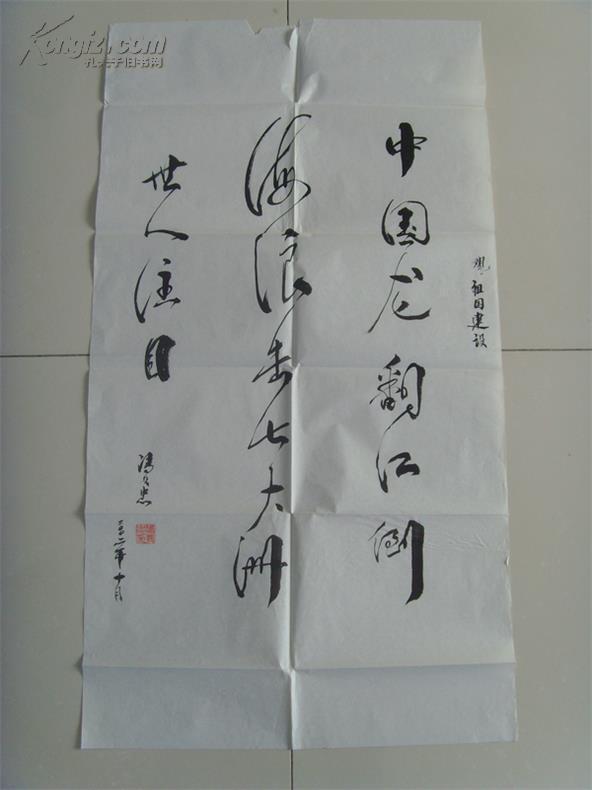 观祖国建设
中国龙翻江倒
海浪击七大洲
世人注目
冯久忠
二〇〇二年十月
Kongfz.com
孔夫子旧书网